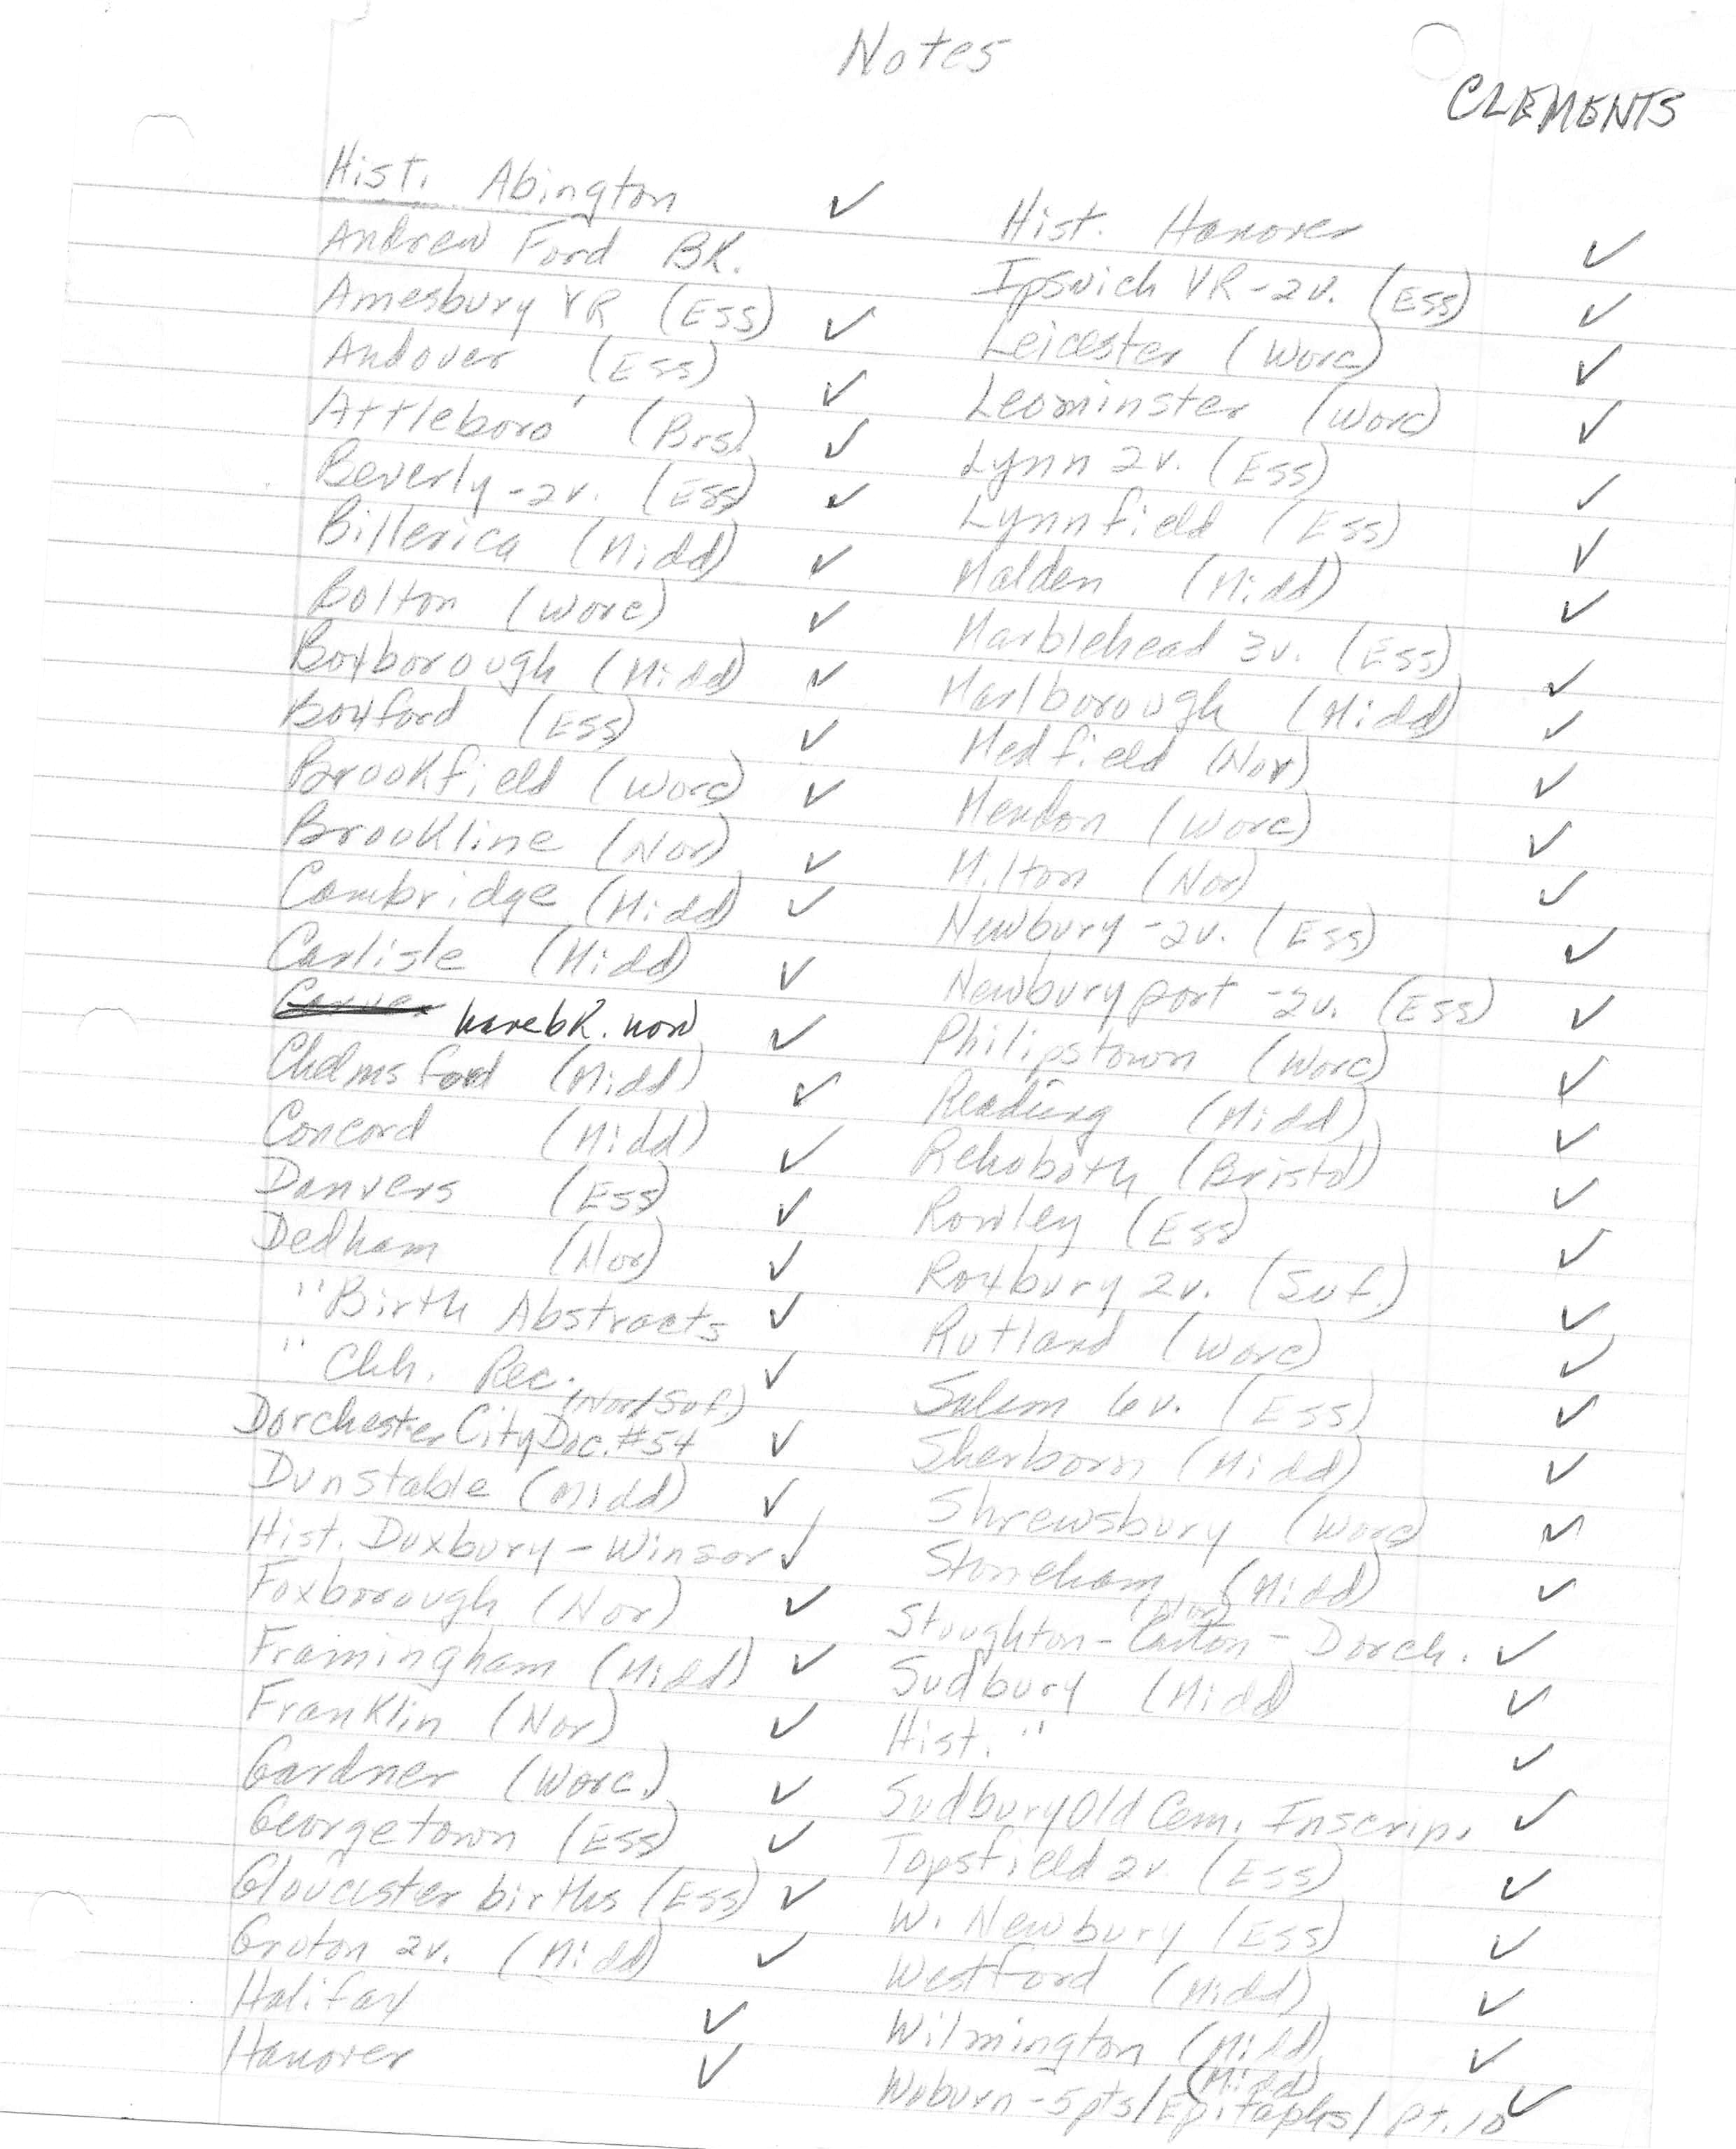 Notes
CLEMENTS
Hist. Abington ✓
Andrew Ford BK.
Amesbury VR (Ess) ✓
Andover (Ess) ✓
Attleboro' (Brs) ✓
Beverly - 2v. (Ess) ✓
Billerica (Midd) ✓
Bolton (Worc) ✓
Boxborough (Midd) ✓
Boxford (Ess) ✓
Brookfield (Worc) ✓
Brookline (Nor) ✓
Cambridge (Midd) ✓
Carlisle (Midd) ✓
Carver have bk. now ✓
Chelmsford (Midd) ✓
Concord (Midd) ✓
Danvers (Ess) ✓
Dedham (Nor) ✓
" Birth Abstracts ✓
" Chh. Rec. ✓
(Nor/Suf.)
Dorchester City Doc. #54 ✓
Dunstable (Midd) ✓
Hist. Duxbury - Winsor ✓
Foxborough (Nor) ✓
Framingham (Midd) ✓
Franklin (Nor) ✓
Gardner (Worc.) ✓
Georgetown (Ess) ✓
Gloucester births (Ess) ✓
Groton 2v. (Midd) ✓
Halifax ✓
Hanover ✓
Hist. Hanover ✓
Ipswich VR - 2v. (Ess) ✓
Leicester (Worc) ✓
Leominster (Worc) ✓
Lynn 2v. (Ess) ✓
Lynnfield (Ess) ✓
Malden (Midd) ✓
Marblehead 3v. (Ess) ✓
Marlborough (Midd) ✓
Medfield (Nor) ✓
Mendon (Worc) ✓
Milton (Nor) ✓
Newbury - 2v. (Ess) ✓
Newburyport - 2v. (Ess) ✓
Philipstown (Worc) ✓
Reading (Midd) ✓
Rehoboth (Bristol) ✓
Rowley (Ess) ✓
Roxbury 2v. (Suf.) ✓
Rutland (Worc) ✓
Salem 6v. (Ess) ✓
Sherborn (Midd) ✓
Shrewsbury (Worc) ✓
Stoneham (Midd) ✓
(Nor)
Stoughton - Canton - Dorch. ✓
Sudbury (Midd) ✓
Hist. " ✓
Sudbury Old Cem. Inscrip. ✓
Topsfield 2v. (Ess) ✓
W. Newbury (Ess) ✓
Westford (Midd) ✓
Wilmington (Midd) ✓
(Midd)
Woburn - 5pts/Epitaphs/ Pt. 10 ✓